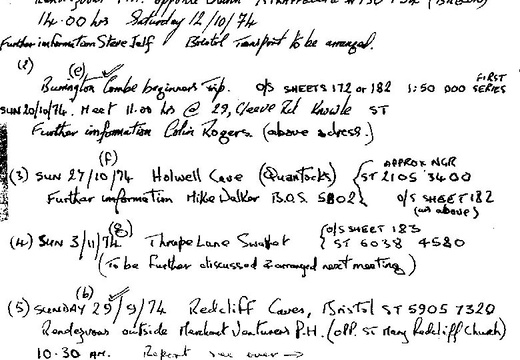 14.00 hrs Saturday 12/10/74
Further information Steve Self Bristol Transport to be arranged.
(2) (e) FIRST
Burrington Combe beginners Trip. O/S SHEETS 172 or 182 1:50 000 SERIES
SUN 20/10/74. Meet 11.00 hrs @ 29, Cleeve Rd Knowle ST
Further information Colin Rogers. (above adress.)
(f) APPROX NGR
(3) SUN 27/10/74 Holwell Cave (Quantocks) ST 2105 3400
Further information Mike Walker B.O.S. 5802 O/S SHEET 182
(as above)
(g) O/S SHEET 183
(4) SUN 3/11/74 Thrupe Lane Swallet ST 6038 4580
(To be further discussed & arranged next meeting)
(b)
(5) SUNDAY 29/9/74 Redcliff Caves, Bristol ST 5905 7320
Rendezvous outside Merchant Venturers P.H. (opp. St Mary Redcliff Church)
10.30 AM. Report see over →